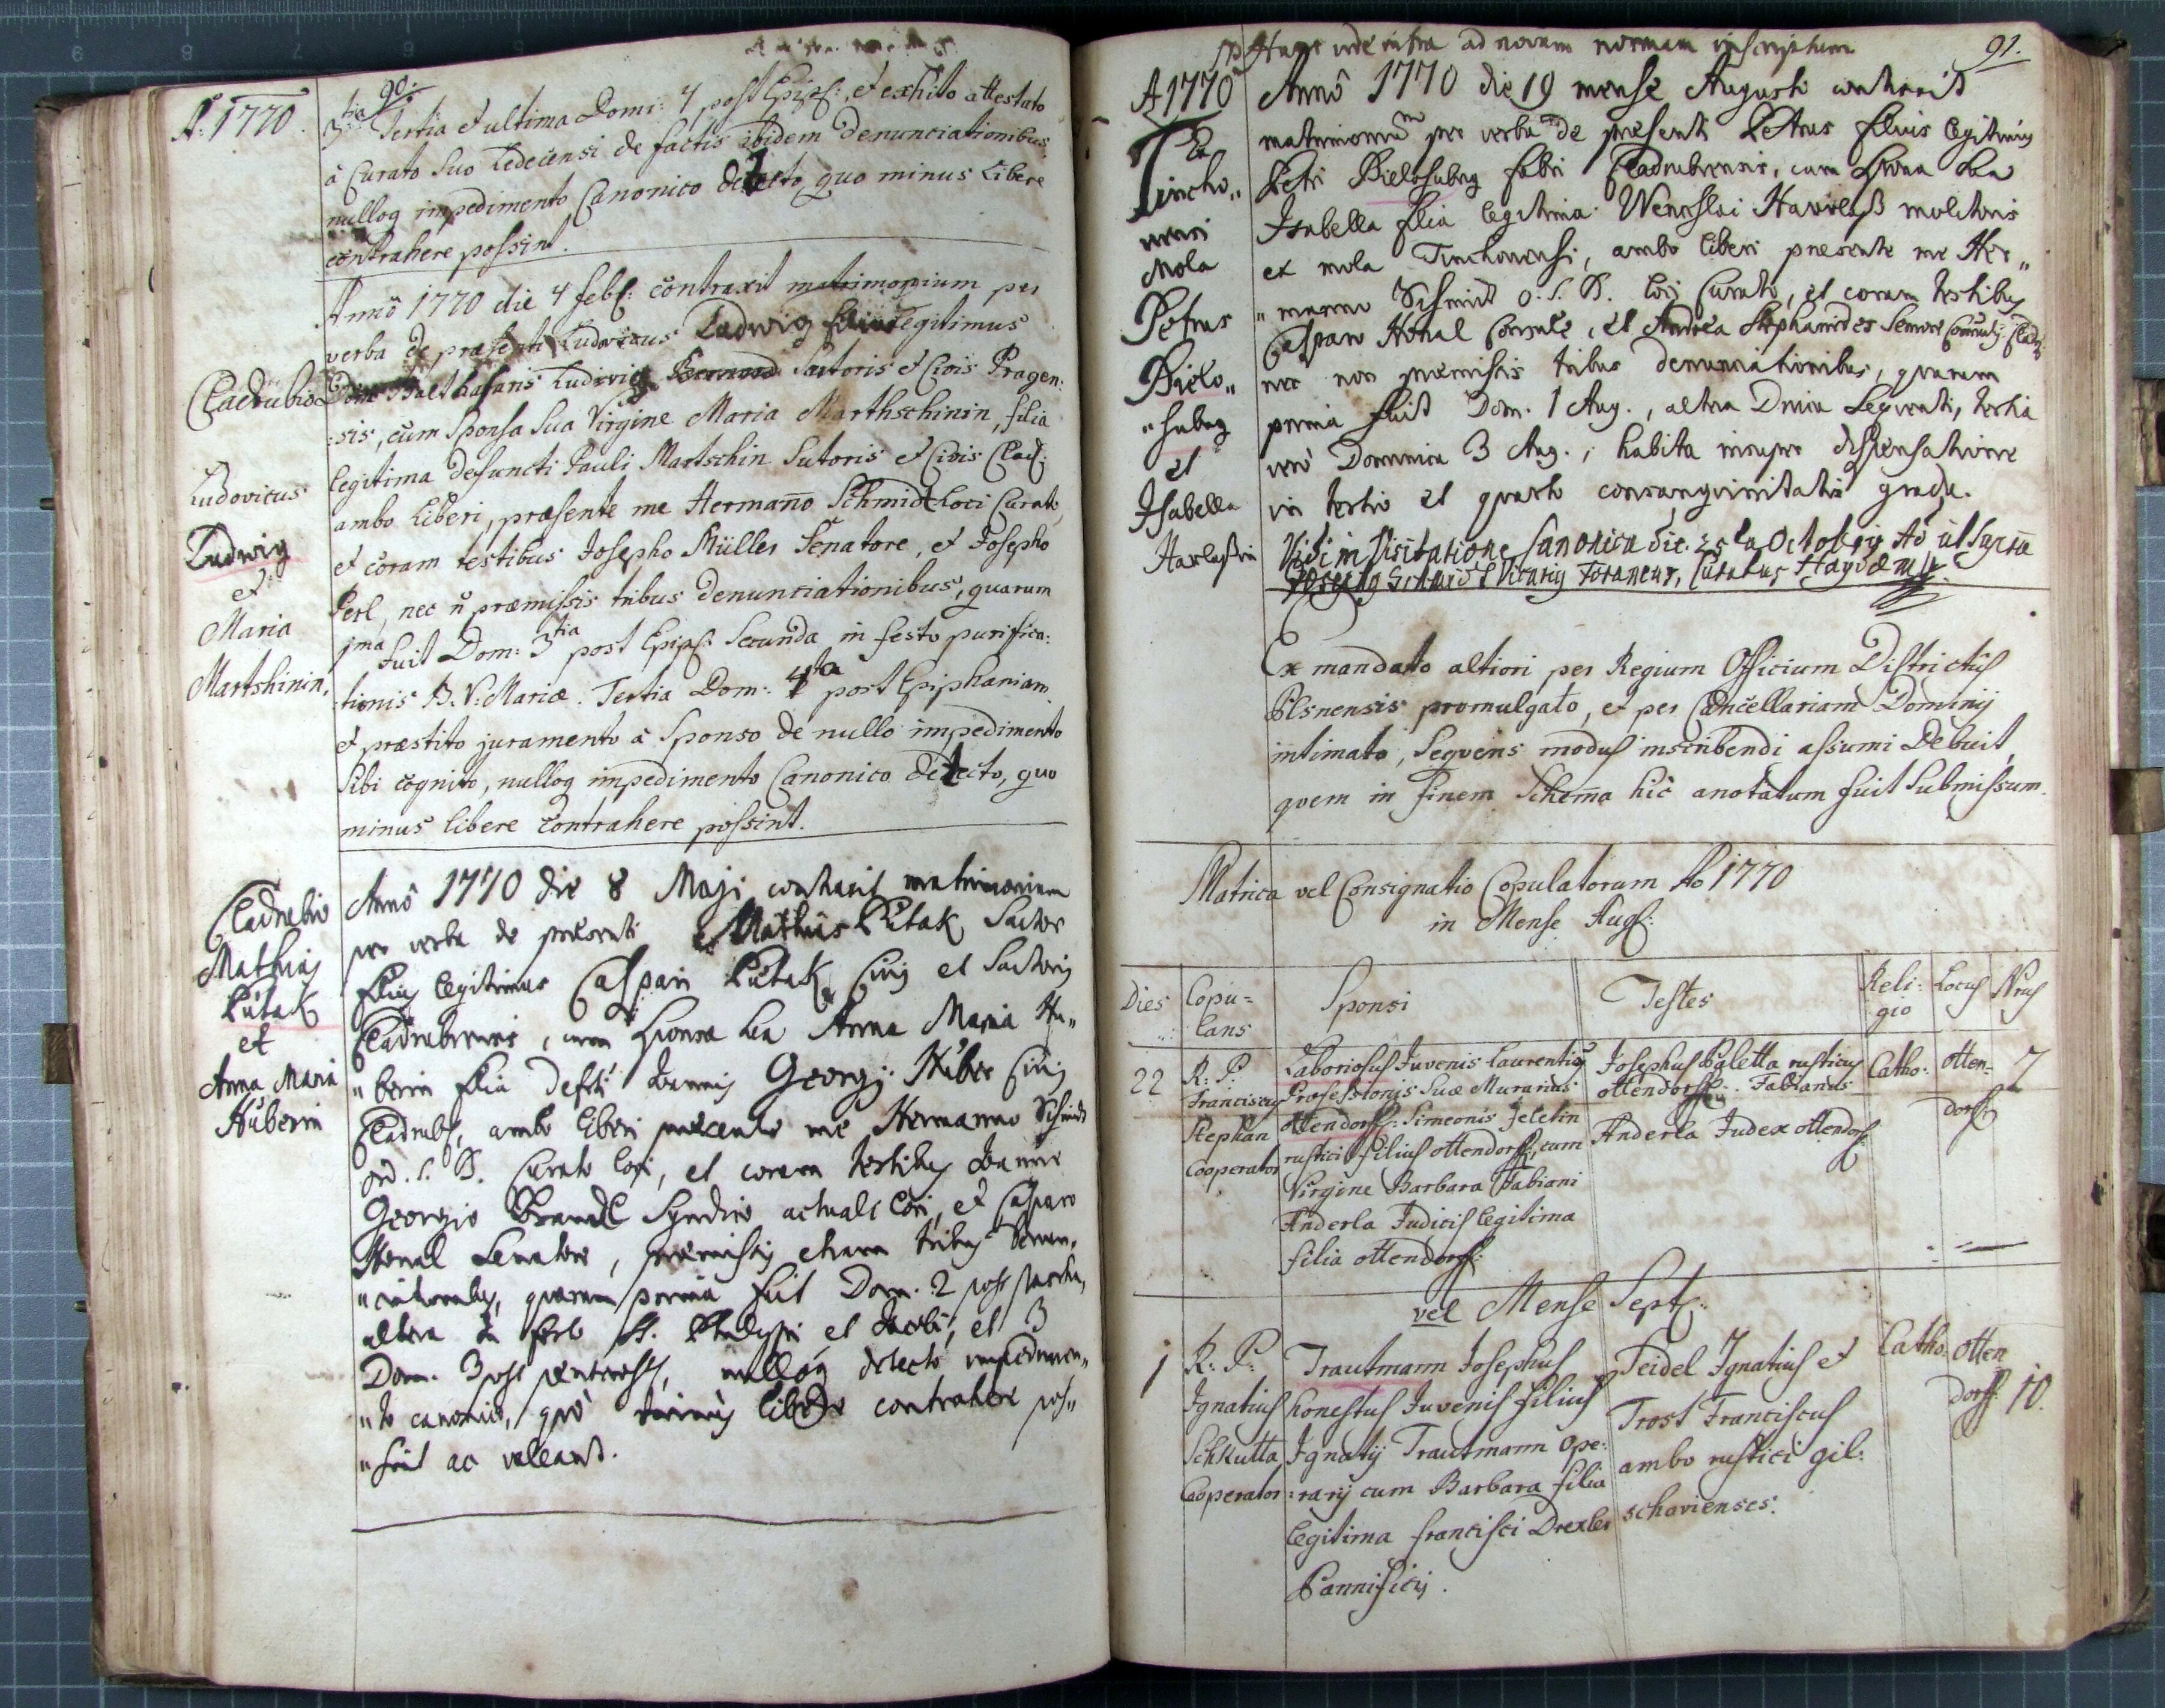 90.
A: 1770
3tia Tertia et ultima Domi: 4 post Epiph:, et exhito attestato
à Curato Suo Tedecensi de factis ibidem denunciationibus,
nulloq impedimento Canonico detecto quo minus Libere
contrahere possint.
Anno 1770 die 4 feb: contraxit matrimonium per
verba de praesenti Ludovicus Ludwig filius Legitimus
Cladrubio
Balthasaris Ludwig Sartoris et Civis Pragen:
:sis, cum Sponsa Sua Virgine Maria Marthschinin, filia
legitima defuncti Pauli Martschin Sutoris et Civis Clad:
Ludovicus
Ludwig
et
Maria
Martshinin,
ambo Liberi, praesente me Hermano Schmidt Loci Curato,
et coram testibus Josepho Müller Senatore, et Josepho
Perl, nec n praemissis tribus denunciationibus, quarum
1ma fuit Dom: 3tia post Epiph: Secunda in festo purifica:
:tionis B. V: Mariae. Tertia Dom: 4ta post Epiphaniam
et praestito juramento à Sponso de nullo impedimento
Sibi cognito, nulloq impedimento Canonico detecto, quo
minus libere contrahere possint.
Cladrubio
Mathias
Pútak
et
Anna Maria
Húberin
Anno 1770 die 8 Maji contraxit matrimonium
per verba de praesenti Mathias Pútak Sartor
filius legitimus Caspari Pútak Civis et Sartoris
Cladrubiensis, cum Sponsa Sua Anna Maria Hu„
„berin filia defti Joannis Georgij Húber Civis
Cladrub, ambo liberi praesente me Hermanno Schmidt
ord. S. B. Curato loci, et coram testibus Joanne
Georgio Brandl Syndico actuali loci, et Casparo
Honal Senatore, praemissis etiam tribus denun„
„ciationibus, quarum prima fuit Dom. 2 post pascha,
altera in festo SS. Philippi et Jacobi, et 3
Dom. 3 post, nulloq detecto impedimen„
„to canonico, quo minus libere contrahere pos„
„sint ac valeant.
91.
Hunc vide intra ad novam normam inscriptum
A 1770
Ex
Tincho„
mensi
Mola
Petrus
Bielo„
„hubeg
et
Isabella
Harlaßin
Anno 1770 die 19 mense Augusti contraxit
matrimonium per verba de praesenti Petrus filius legitimus
Petri Bielohubeg fabri Cladrubiensis, cum Sponsa Sua
Isabella filia legitima Wenceslai Havrlaß molitoris
ex mola Tinchonensi, ambo liberi praesente me Her„
„manno Schmidt O. S. B. loci Curato, et coram testibus
Casparo Honal Consule, et Andrea Stephanides Seniore Clad:
nec non praemissis tribus denunciationibus, quarum
prima fuit Dom. 1 Aug., altera Dnica Sequenti, tertia
vero Dominica 3 Aug., habita insuper dispensatione
in tertio et quarto consanguinitatis gradu.
Vidi in Visitatione Canonica die 25ta Octobris Ao ut Supra
Josephus Schmidt Vicarius Foraneus, Curatus
Ex mandato altiori per Regium Officium Districtus
Plsnensis promulgato, et per Cancellariam Dominij
intimato, Seqvens modus inscribendi assumi Debuit,
qvem in finem Schema hic anotatum fuit Submissum.
Matrica vel Consignatio Copulatorum Ao 1770
in Mense Aug:
Dies
Copu=
lans
Sponsi
Testes
Reli:
gio
Locus
Nrus
22
R: P:
Franciscus
Stephan
Cooperator
Laboriosus Juvenis Laurentius
Professionis Suae Murarius
Ottendorff: Simeonis Jeletin
rustici filius ottendorff:, cum
Virgine Barbara Fabiani
Anderla Judicis legitima
filia ottendorff:
Josephus Paletta rusticus
ottendorff: Fabianus
Anderla Judex ottendorf:
Catho:
Otten-
dorff:
7
vel Mense Sept:
1
R: P:
Ignatius
Schkutta
Cooperator
Trautmann Josephus
honestus Juvenis filius
Ignatij Trautmann Ope:
:rarij cum Barbara filia
legitima francisci Drexler
Pannificis.
Feidel Ignatius et
Trost Franciscus
ambo rustici gil:
schovienses.
Catho:
Otten
dorff:
10.